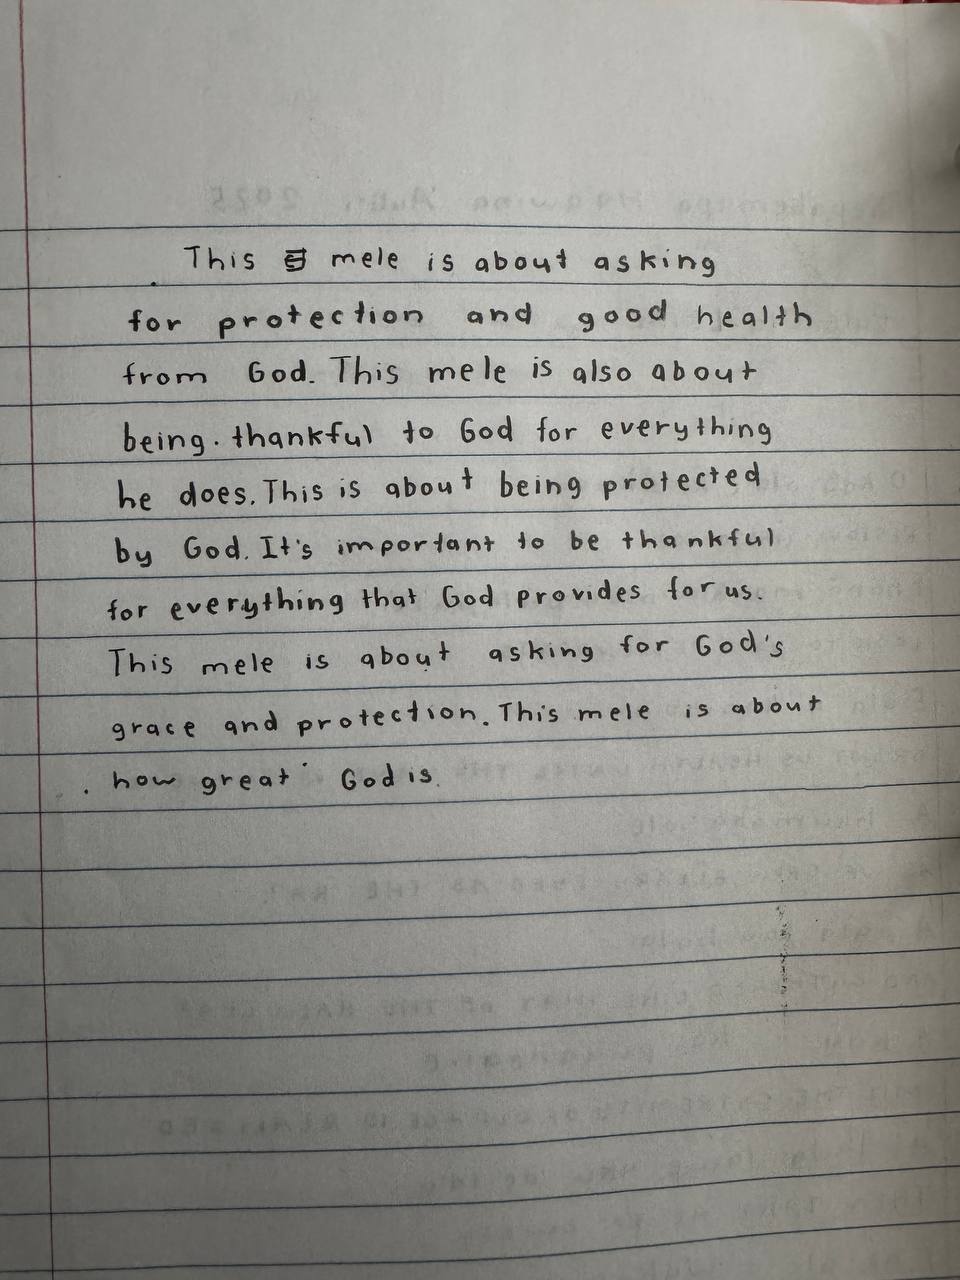 This mele is about asking
for protection and good health
from God. This mele is also about
being. thankful to God for everything
he does. This is about being protected
by God. It's important to be thankful
for everything that God provides for us.
This mele is about asking for God's
grace and protection. This mele is about
how great God is.